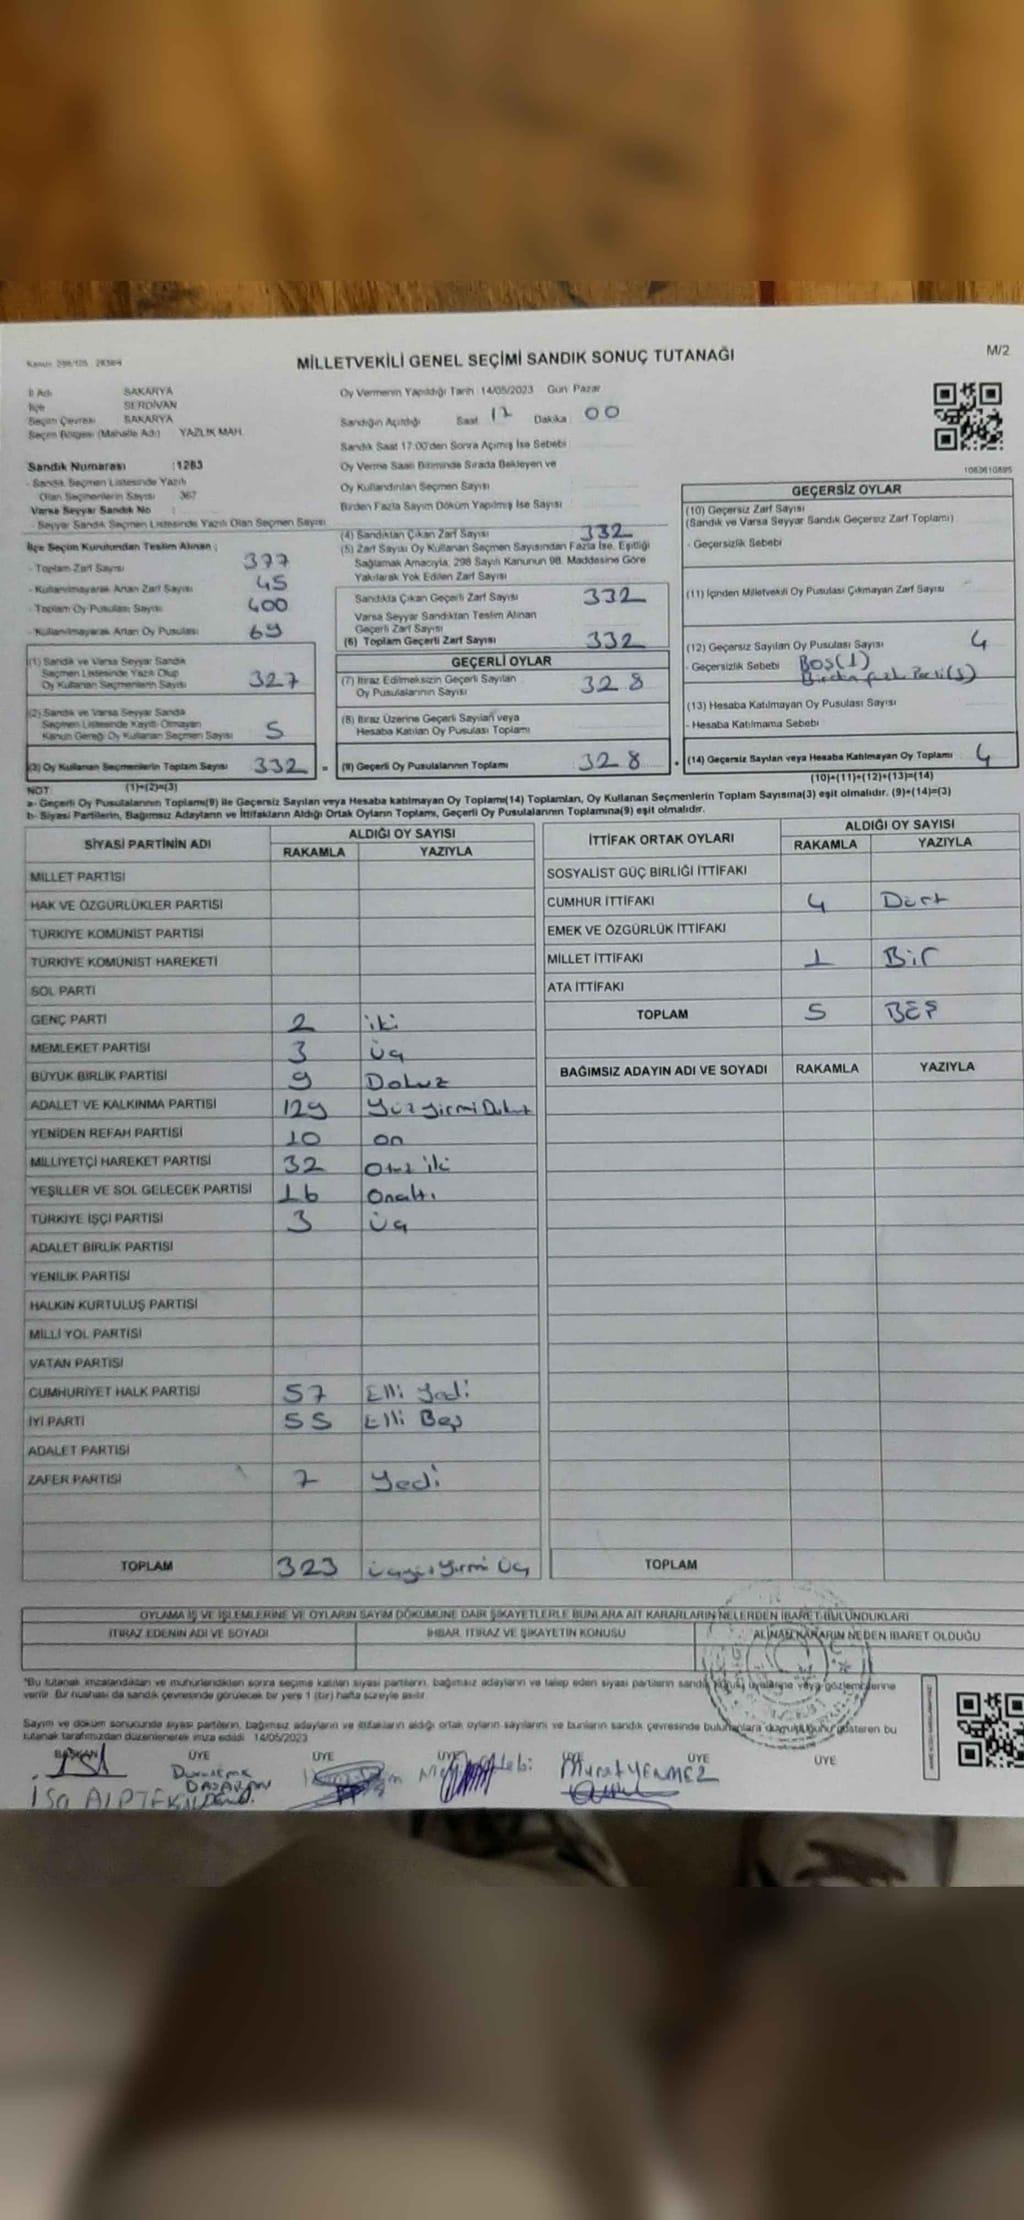 MİLLETVEKİLİ GENEL SEÇİMİ SANDIK SONUÇ TUTANAĞI
M/2
İl Adı SAKARYA
İlçe SERDİVAN
Seçim Çevresi SAKARYA
Seçim Bölgesi (Mahalle Adı) YAZLIK MAH.
Sandık Numarası :1283
- Sandık Seçmen Listesinde Yazılı
Olan Seçmenlerin Sayısı 367
Varsa Seyyar Sandık No :
- Seyyar Sandık Seçmen Listesinde Yazılı Olan Seçmen Sayısı
İlçe Seçim Kurulundan Teslim Alınan ;
- Toplam Zarf Sayısı 377
- Kullanılmayarak Artan Zarf Sayısı 45
- Toplam Oy Pusulası Sayısı 400
- Kullanılmayarak Artan Oy Pusulası 69
(1) Sandık ve Varsa Seyyar Sandık
Seçmen Listesinde Yazılı Olup
Oy Kullanan Seçmenlerin Sayısı 327
(2) Sandık ve Varsa Seyyar Sandık
Seçmen Listesinde Kayıtlı Olmayan
Kanun Gereği Oy Kullanan Seçmen Sayısı 5
(3) Oy Kullanan Seçmenlerin Toplam Sayısı 332 =
(1)+(2)=(3)
Oy Vermenin Yapıldığı Tarih : 14/05/2023 Gün: Pazar
Sandığın Açıldığı Saat 17 Dakika 00
Sandık Saat 17:00'den Sonra Açılmış İse Sebebi
Oy Verme Saati Bitiminde Sırada Bekleyen ve
Oy Kullandırılan Seçmen Sayısı
Birden Fazla Sayım Döküm Yapılmış İse Sayısı
(4) Sandıktan Çıkan Zarf Sayısı 332
(5) Zarf Sayısı Oy Kullanan Seçmen Sayısından Fazla İse, Eşitliği
Sağlamak Amacıyla, 298 Sayılı Kanunun 98. Maddesine Göre
Yakılarak Yok Edilen Zarf Sayısı
Sandıkta Çıkan Geçerli Zarf Sayısı 332
Varsa Seyyar Sandıktan Teslim Alınan
Geçerli Zarf Sayısı
(6) Toplam Geçerli Zarf Sayısı 332
GEÇERLİ OYLAR
(7) İtiraz Edilmeksizin Geçerli Sayılan
Oy Pusulalarının Sayısı 328
(8) İtiraz Üzerine Geçerli Sayılan veya
Hesaba Katılan Oy Pusulası Toplamı
(9) Geçerli Oy Pusulalarının Toplamı 328 +
1083610895
GEÇERSİZ OYLAR
(10) Geçersiz Zarf Sayısı
(Sandık ve Varsa Seyyar Sandık Geçersiz Zarf Toplamı)
- Geçersizlik Sebebi
(11) İçinden Milletvekili Oy Pusulası Çıkmayan Zarf Sayısı
(12) Geçersiz Sayılan Oy Pusulası Sayısı 4
- Geçersizlik Sebebi BOŞ(1)
(13) Hesaba Katılmayan Oy Pusulası Sayısı
- Hesaba Katılmama Sebebi
(14) Geçersiz Sayılan veya Hesaba Katılmayan Oy Toplamı 4
(10)+(11)+(12)+(13)=(14)
NOT:
a- Geçerli Oy Pusulalarının Toplamı(9) ile Geçersiz Sayılan veya Hesaba katılmayan Oy Toplamı(14) Toplamları, Oy Kullanan Seçmenlerin Toplam Sayısına(3) eşit olmalıdır. (9)+(14)=(3)
b- Siyasi Partilerin, Bağımsız Adayların ve İttifakların Aldığı Ortak Oyların Toplamı, Geçerli Oy Pusulalarının Toplamına(9) eşit olmalıdır.
SİYASİ PARTİNİN ADI ALDIĞI OY SAYISI
RAKAMLA YAZIYLA
MİLLET PARTİSİ
HAK VE ÖZGÜRLÜKLER PARTİSİ
TÜRKİYE KOMÜNİST PARTİSİ
TÜRKİYE KOMÜNİST HAREKETİ
SOL PARTİ
GENÇ PARTİ 2 iki
MEMLEKET PARTİSİ 3 üç
BÜYÜK BİRLİK PARTİSİ 9 Dokuz
ADALET VE KALKINMA PARTİSİ 129 Yüzyirmi Dokuz
YENİDEN REFAH PARTİSİ 10 on
MİLLİYETÇİ HAREKET PARTİSİ 32 Otuz iki
YEŞİLLER VE SOL GELECEK PARTİSİ 16 Onaltı
TÜRKİYE İŞÇİ PARTİSİ 3 üç
ADALET BİRLİK PARTİSİ
YENİLİK PARTİSİ
HALKIN KURTULUŞ PARTİSİ
MİLLİ YOL PARTİSİ
VATAN PARTİSİ
CUMHURİYET HALK PARTİSİ 57 Elli Yedi
İYİ PARTİ 55 Elli Beş
ADALET PARTİSİ
ZAFER PARTİSİ 7 Yedi
TOPLAM 323 üçyüzyirmi üç
İTTİFAK ORTAK OYLARI ALDIĞI OY SAYISI
RAKAMLA YAZIYLA
SOSYALİST GÜÇ BİRLİĞİ İTTİFAKI
CUMHUR İTTİFAKI 4 Dört
EMEK VE ÖZGÜRLÜK İTTİFAKI
MİLLET İTTİFAKI 1 Bir
ATA İTTİFAKI
TOPLAM 5 BEŞ
BAĞIMSIZ ADAYIN ADI VE SOYADI RAKAMLA YAZIYLA
TOPLAM
OYLAMA İŞ VE İŞLEMLERİNE VE OYLARIN SAYIM DÖKÜMÜNE DAİR ŞİKAYETLERLE BUNLARA AİT KARARLARIN NELERDEN İBARET BULUNDUKLARI
İTİRAZ EDENİN ADI VE SOYADI İHBAR, İTİRAZ VE ŞİKAYETİN KONUSU ALINAN KARARIN NEDEN İBARET OLDUĞU
*Bu tutanak imzalandıktan ve mühürlendikten sonra seçime katılan siyasi partilerin, bağımsız adayların ve talep eden siyasi partilerin sandık kurulu üyelerine veya gözlemcilerine
verilir. Bir nüshası da sandık çevresinde görülecek bir yere 1 (bir) hafta süreyle asılır.
Sayım ve döküm sonucunda siyasi partilerin, bağımsız adayların ve ittifakların aldığı ortak oyların sayılarını ve bunların sandık çevresinde bulunanlara duyurulduğunu gösteren bu
tutanak tarafımızdan düzenlenerek imza edildi. 14/05/2023
BAŞKAN ÜYE ÜYE ÜYE ÜYE ÜYE ÜYE
Murat YENMEZ